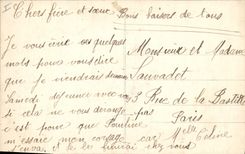 Chers frère et sœur Bons baisers de tous
Je vous écris ces quelques
mots pour vous dire
que je viendrais demain
Samedi
si cela ne vous dérange pas
c'est pour que Pauline
m'essaie mon corsage car Melle Céline
et je le finirai chez vous
Monsieur et Madame
Sauvadet
3 Rue de la Bastille
Paris